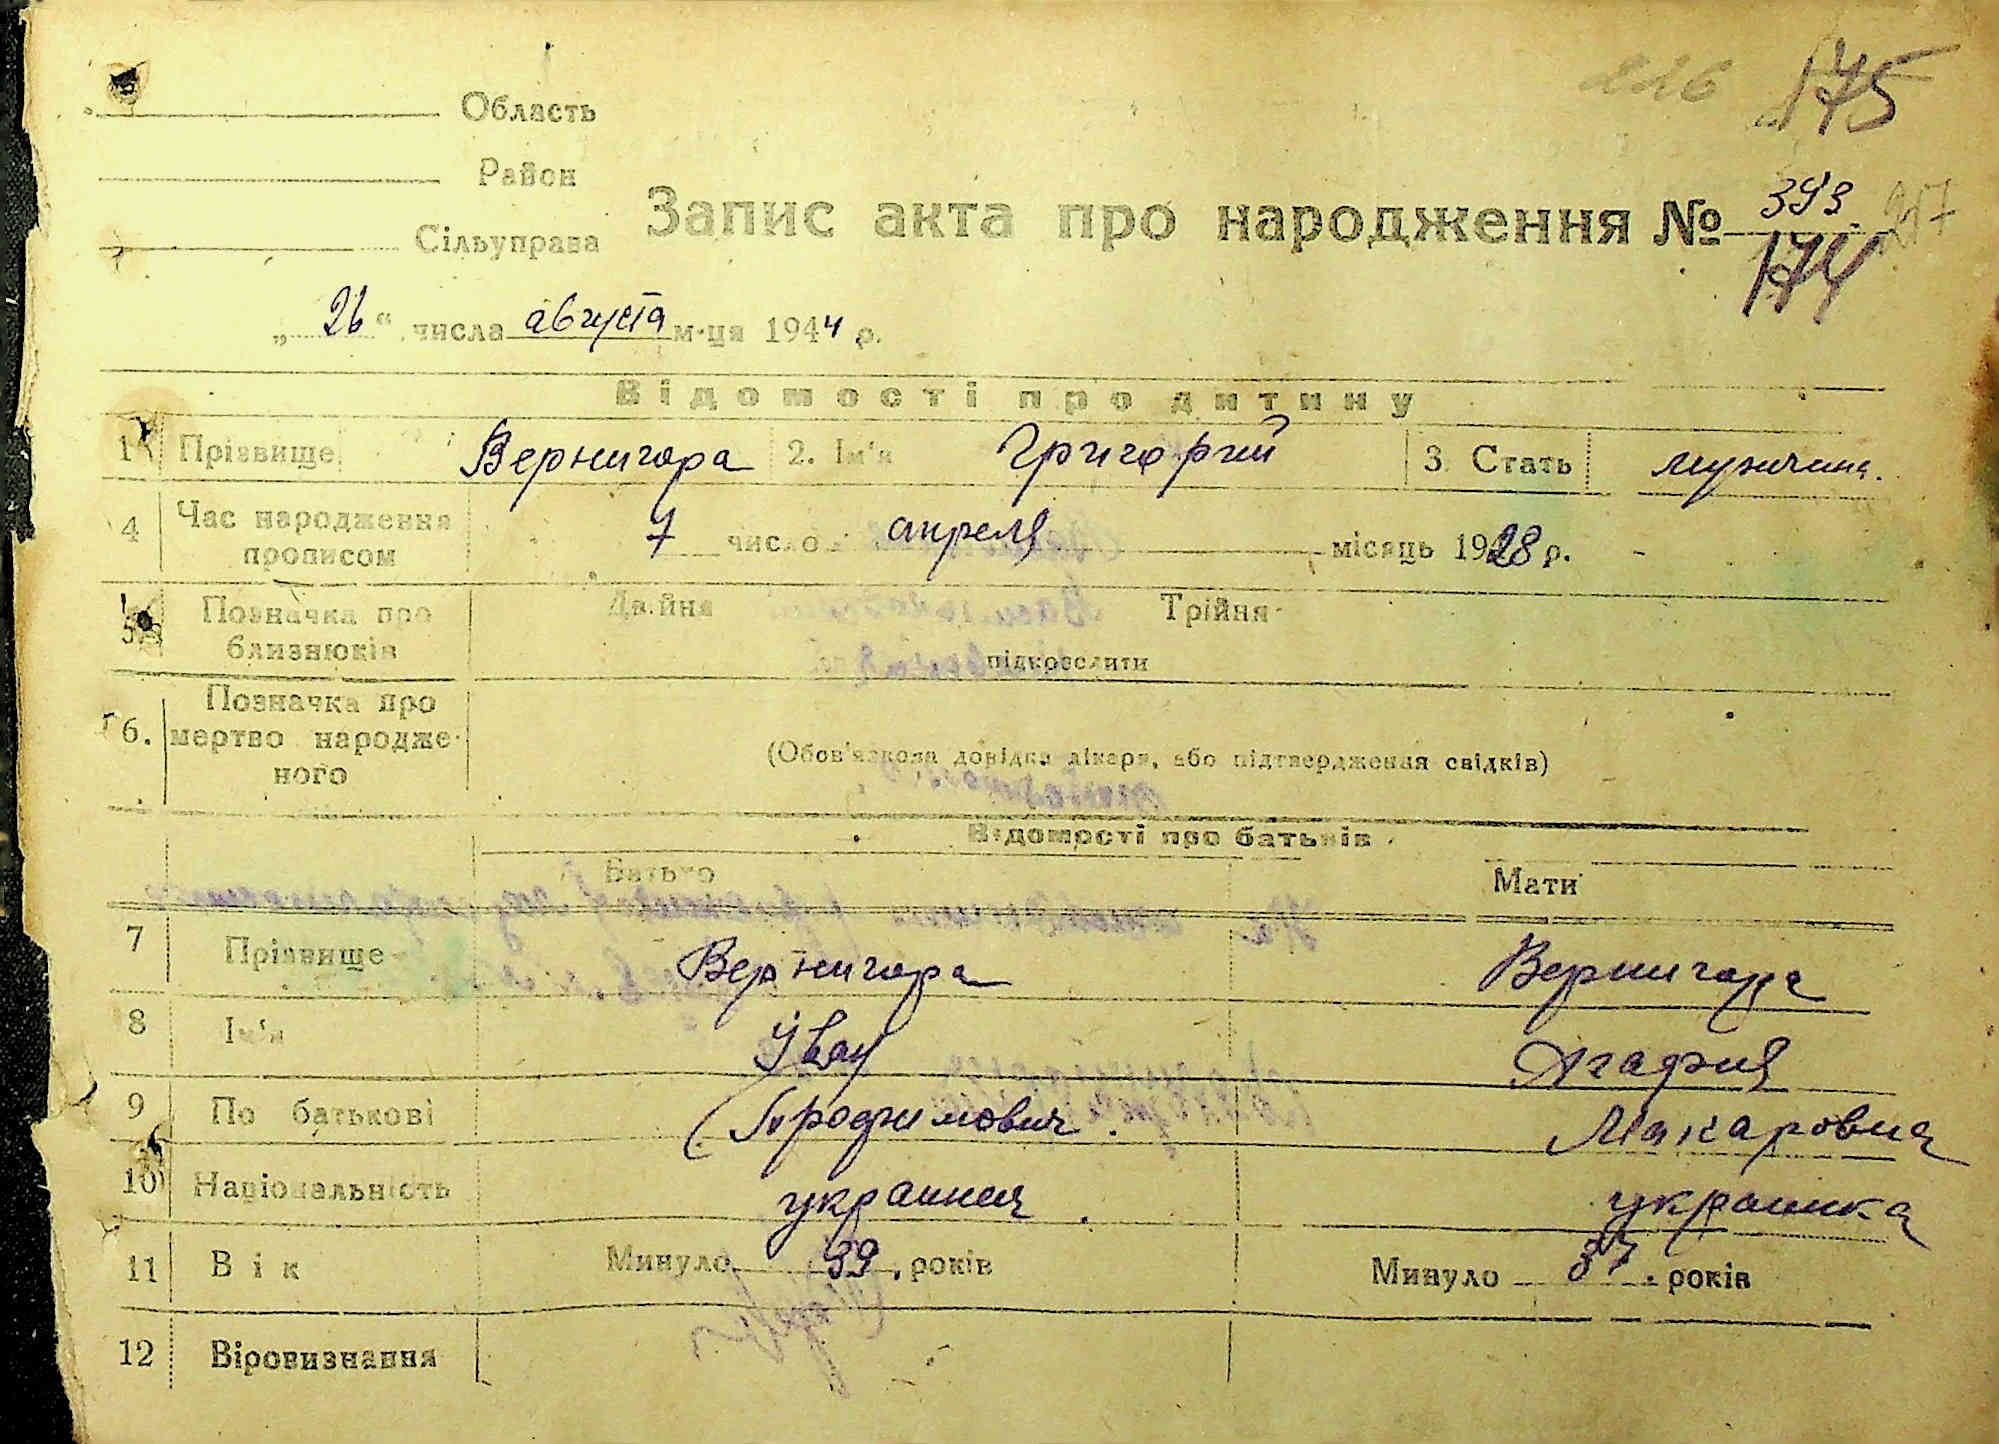 116 175
Область
Район
Сільуправа
Запис акта про народження № 393 217
174
„ 26 “ числа августа м-ця 1944 р.
Відомості про дитину
1 Прізвище Вернигора 2. Ім'я Григорий 3 Стать мужчина.
4 Час народження прописом 7 число апреля місяць 1928 р.
5 Позначка про близнюків Двійня Трійня
підкреслити
6. Позначка про мертво народженого
(Обов'язкова довідка лікаря, або підтвердження свідків)
Відомості про батьків
Батько Мати
7 Прізвище Вернигора Вернигора
8 Ім'я Иван Агафия
9 По батькові Макаровна
10 Національність украинец украинка
11 Вік Минуло 39 років Минуло 37 років
12 Віровизнання